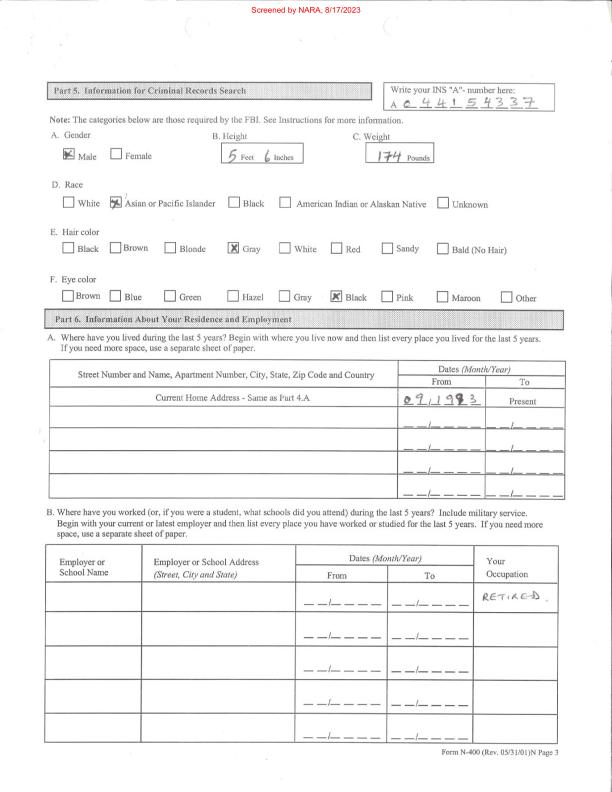 Screened by NARA, 8/17/2023
Part 5. Information for Criminal Records Search
Write your INS "A"- number here:
A 0 4 4 1 5 4 3 3 7
Note: The categories below are those required by the FBI. See Instructions for more information.
A. Gender B. Height C. Weight
Male Female 5 Feet 6 Inches 174 Pounds
D. Race
White Asian or Pacific Islander Black American Indian or Alaskan Native Unknown
E. Hair color
Black Brown Blonde Gray White Red Sandy Bald (No Hair)
F. Eye color
Brown Blue Green Hazel Gray Black Pink Maroon Other
Part 6. Information About Your Residence and Employment
A. Where have you lived during the last 5 years? Begin with where you live now and then list every place you lived for the last 5 years.
If you need more space, use a separate sheet of paper.
Street Number and Name, Apartment Number, City, State, Zip Code and Country
Dates (Month/Year)
From To
Current Home Address - Same as Part 4.A 09/1993 Present
B. Where have you worked (or, if you were a student, what schools did you attend) during the last 5 years? Include military service.
Begin with your current or latest employer and then list every place you have worked or studied for the last 5 years. If you need more
space, use a separate sheet of paper.
Employer or
School Name
Employer or School Address
(Street, City and State)
Dates (Month/Year)
From To
Your
Occupation
RETIRED.
Form N-400 (Rev. 05/31/01)N Page 3